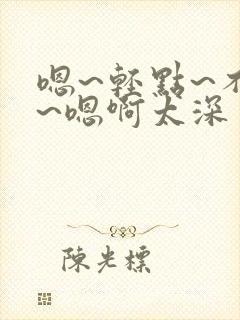 嗯~轻點~不
~嗯啊太深
陈光標